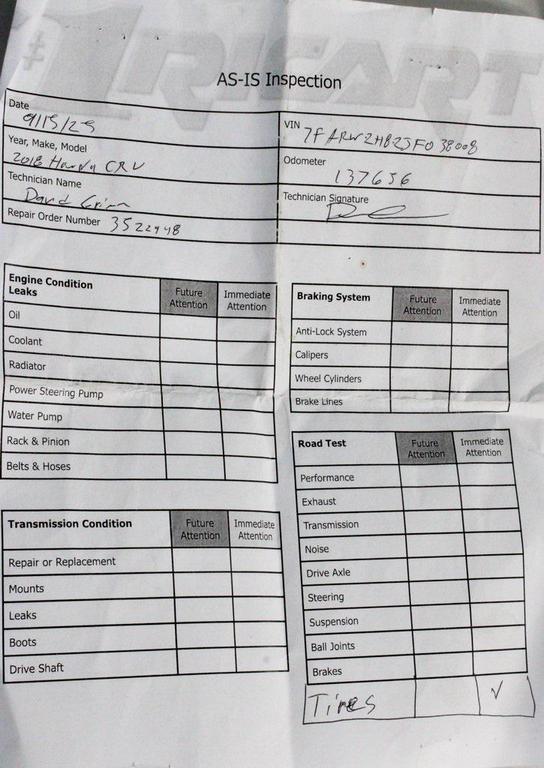 #1 RICART
AS-IS Inspection
Date
9/15/25
VIN 7FARW2H82JE038008
Year, Make, Model
2018 Honda CRV
Odometer
137656
Technician Name
David
Technician Signature
Repair Order Number 3522948
Engine Condition
Leaks
Future
Attention
Immediate
Attention
Oil
Coolant
Radiator
Power Steering Pump
Water Pump
Rack & Pinion
Belts & Hoses
Braking System
Future
Attention
Immediate
Attention
Anti-Lock System
Calipers
Wheel Cylinders
Brake Lines
Transmission Condition
Future
Attention
Immediate
Attention
Repair or Replacement
Mounts
Leaks
Boots
Drive Shaft
Road Test
Future
Attention
Immediate
Attention
Performance
Exhaust
Transmission
Noise
Drive Axle
Steering
Suspension
Ball Joints
Brakes
Tires ✓